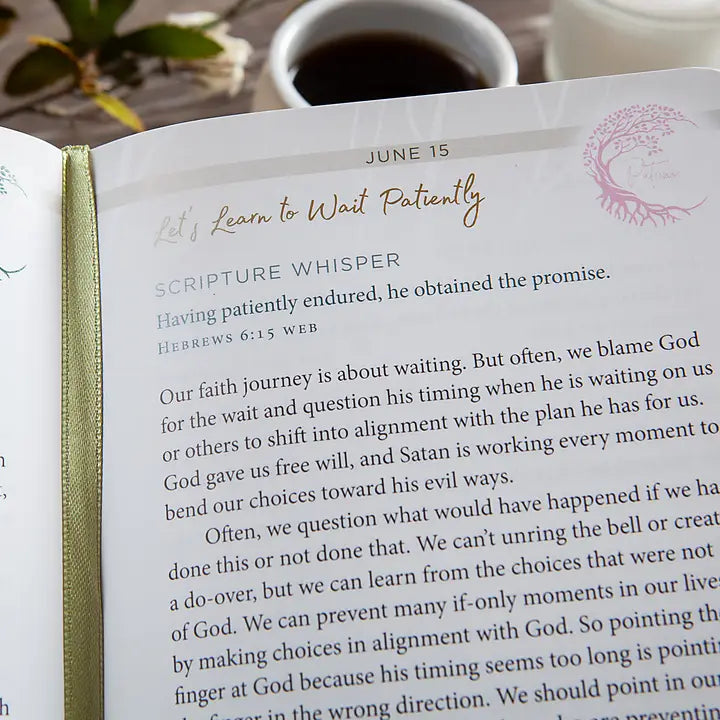 JUNE 15
Let's Learn to Wait Patiently
SCRIPTURE WHISPER
Having patiently endured, he obtained the promise.
HEBREWS 6:15 WEB
Our faith journey is about waiting. But often, we blame God
for the wait and question his timing when he is waiting on us
or others to shift into alignment with the plan he has for us.
God gave us free will, and Satan is working every moment to
bend our choices toward his evil ways.
Often, we question what would have happened if we ha
done this or not done that. We can't unring the bell or creat
a do-over, but we can learn from the choices that were not
of God. We can prevent many if-only moments in our lives
by making choices in alignment with God. So pointing th
finger at God because his timing seems too long is pointi
finger in the wrong direction. We should point in our
preventin